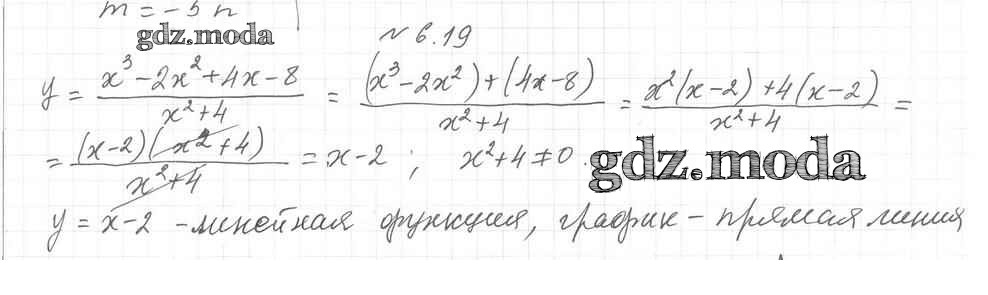 m = -5n
gdz.moda
№ 6.19
y = (x³ - 2x² + 4x - 8)/(x² + 4) = ((x³ - 2x²) + (4x - 8))/(x² + 4) = (x²(x - 2) + 4(x - 2))/(x² + 4) =
= ((x - 2)(x² + 4))/(x² + 4) = x - 2 ; x² + 4 ≠ 0.
gdz.moda
y = x - 2 - линейная функция, график - прямая линия